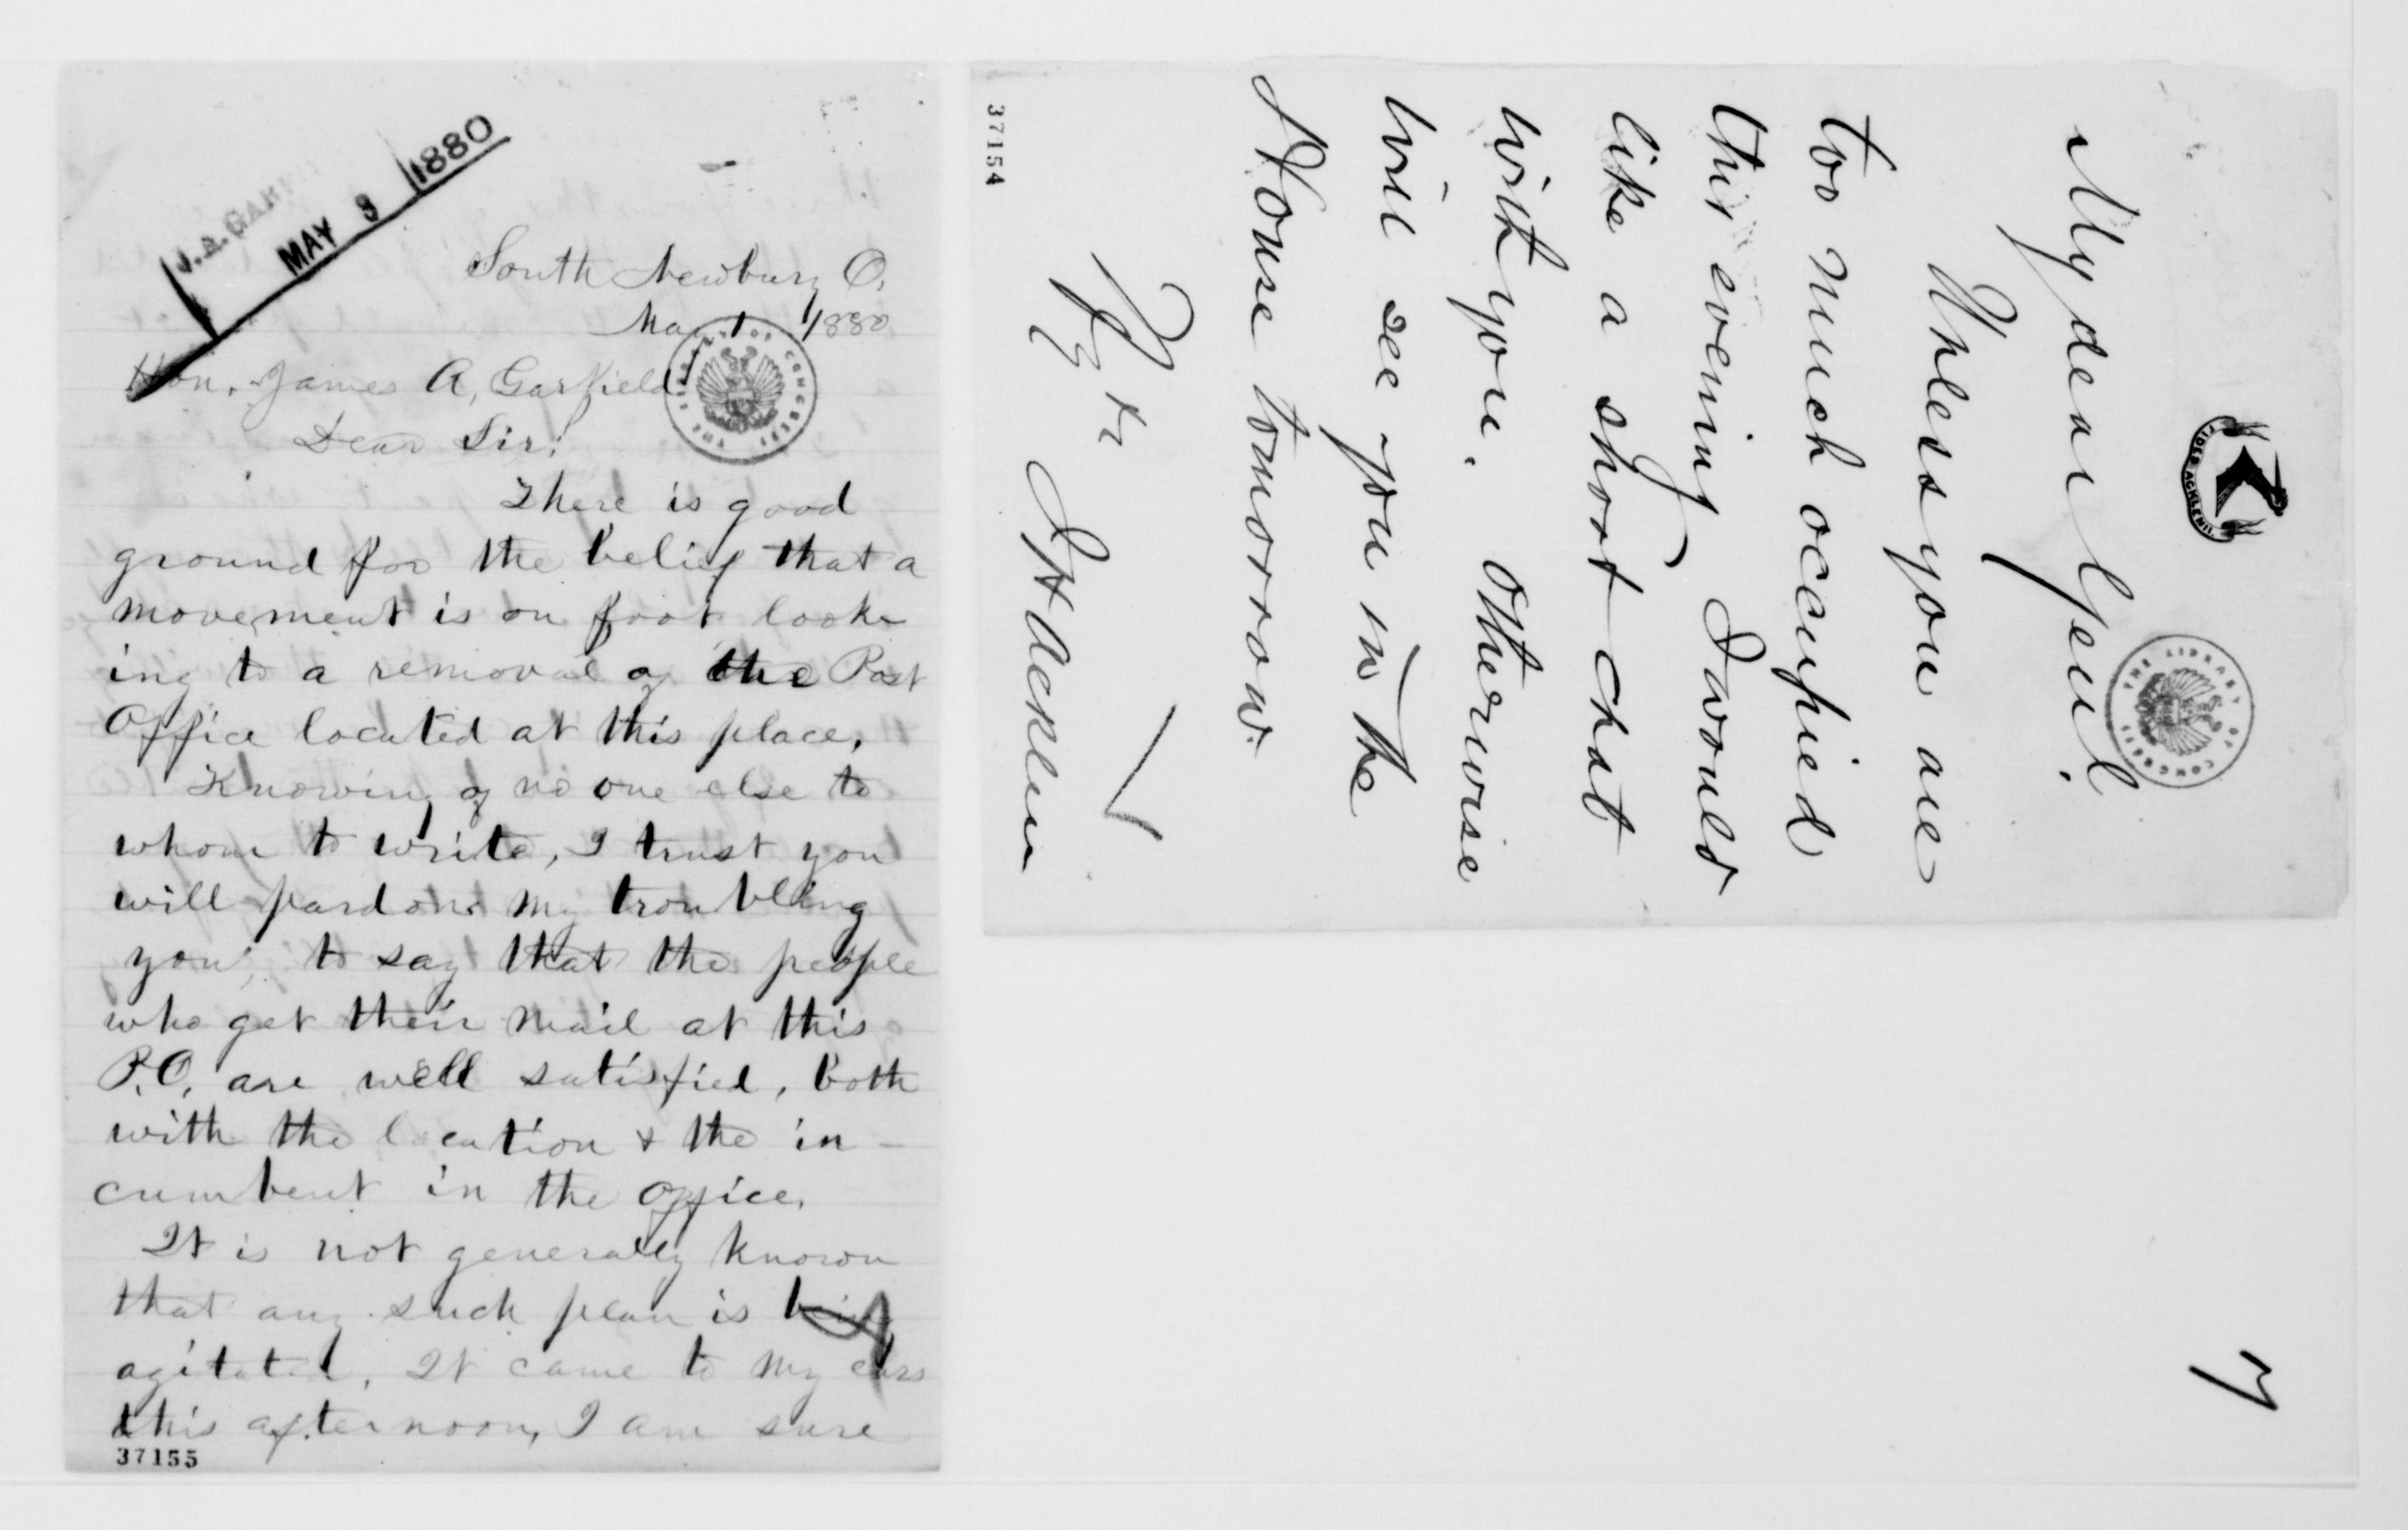 J.A. GAR
MAY 3 1880
South Newbury O.
May 1 1880
Hon. James A. Garfield
Dear Sir:
There is good
ground for the belief that a
movement is on foot look-
ing to a removal of the Post
Office located at this place.
Knowing of no one else to
whom to write, I trust you
will pardon my troubling
you, to say that the people
who get their mail at this
P.O. are well satisfied, both
with the location & the in-
cumbent in the office.
It is not generally known
that any such plan is being
agitated. It came to my ears
this afternoon, I am sure
37155
THE LIBRARY OF CONGRESS
FIDES ACKLENII
THE LIBRARY OF CONGRESS
My dear Genl.
Unless you are
too much occupied
this evening I would
like a short chat
with you. Otherwise
will see you in the
House tomorrow
JH Acklen
37154